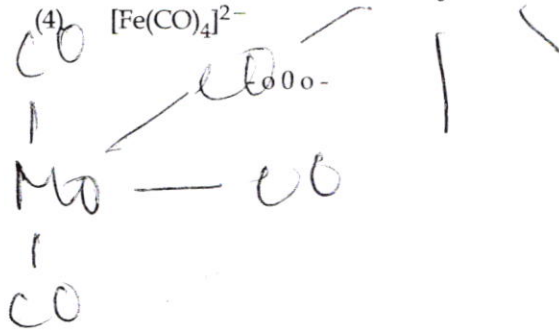 (4) [Fe(CO)₄]²⁻
CO
CO
- o 0 o -
Mo — CO
CO